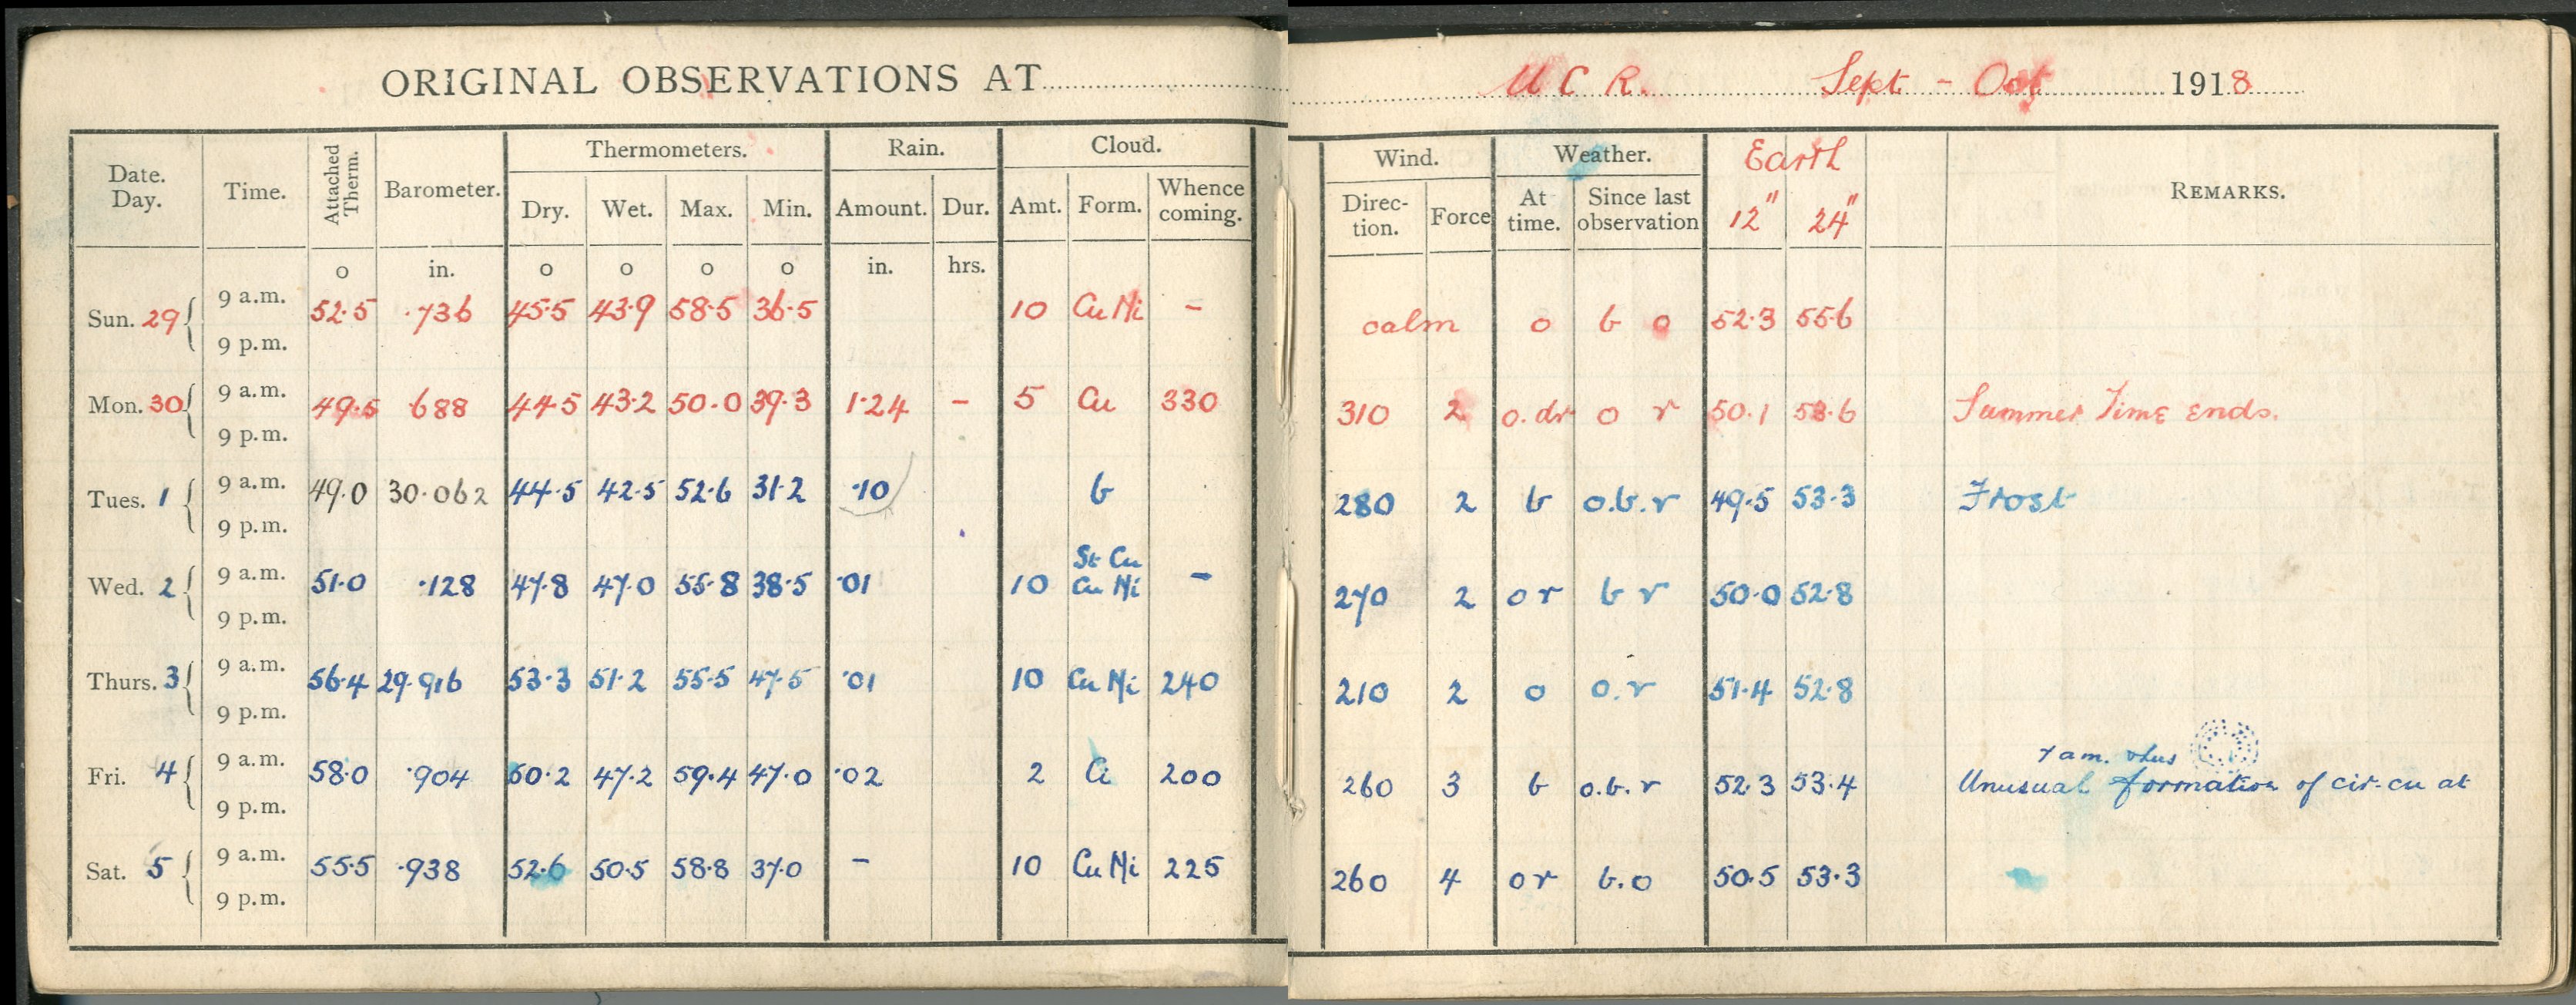 ORIGINAL OBSERVATIONS AT U C R. Sept - Oct 1918
Date. Day. Time. Attached Therm. Barometer. Thermometers. Rain. Cloud. Wind. Weather. Earth REMARKS.
Dry. Wet. Max. Min. Amount. Dur. Amt. Form. Whence coming. Direc-tion. Force At time. Since last observation 12" 24"
o in. o o o o in. hrs.
Sun. 29 9 a.m. 52.5 .736 45.5 43.9 58.5 36.5 10 CuNi - calm o b o 52.3 55.6
9 p.m.
Mon. 30 9 a.m. 49.5 .688 44.5 43.2 50.0 39.3 1.24 - 5 Cu 330 310 2 o.dr o r 50.1 53.6 Summer Time ends.
9 p.m.
Tues. 1 9 a.m. 49.0 30.062 44.5 42.5 52.6 31.2 .10 b 280 2 b o.b.r 49.5 53.3 Frost
9 p.m.
St Cu
Wed. 2 9 a.m. 51.0 .128 47.8 47.0 55.8 38.5 .01 10 Cu Ni - 270 2 o r b r 50.0 52.8
9 p.m.
Thurs. 3 9 a.m. 56.4 29.916 53.3 51.2 55.5 47.5 .01 10 Cu Ni 240 210 2 o o.r 51.4 52.8
9 p.m.
7 am. thus
Fri. 4 9 a.m. 58.0 .904 50.2 47.2 59.4 47.0 .02 2 Ci 200 260 3 b o.b.r 52.3 53.4 Unusual formation of cir-cu at
9 p.m.
Sat. 5 9 a.m. 55.5 .938 52.6 50.5 58.8 37.0 - 10 Cu Ni 225 260 4 o r b.o 50.5 53.3
9 p.m.